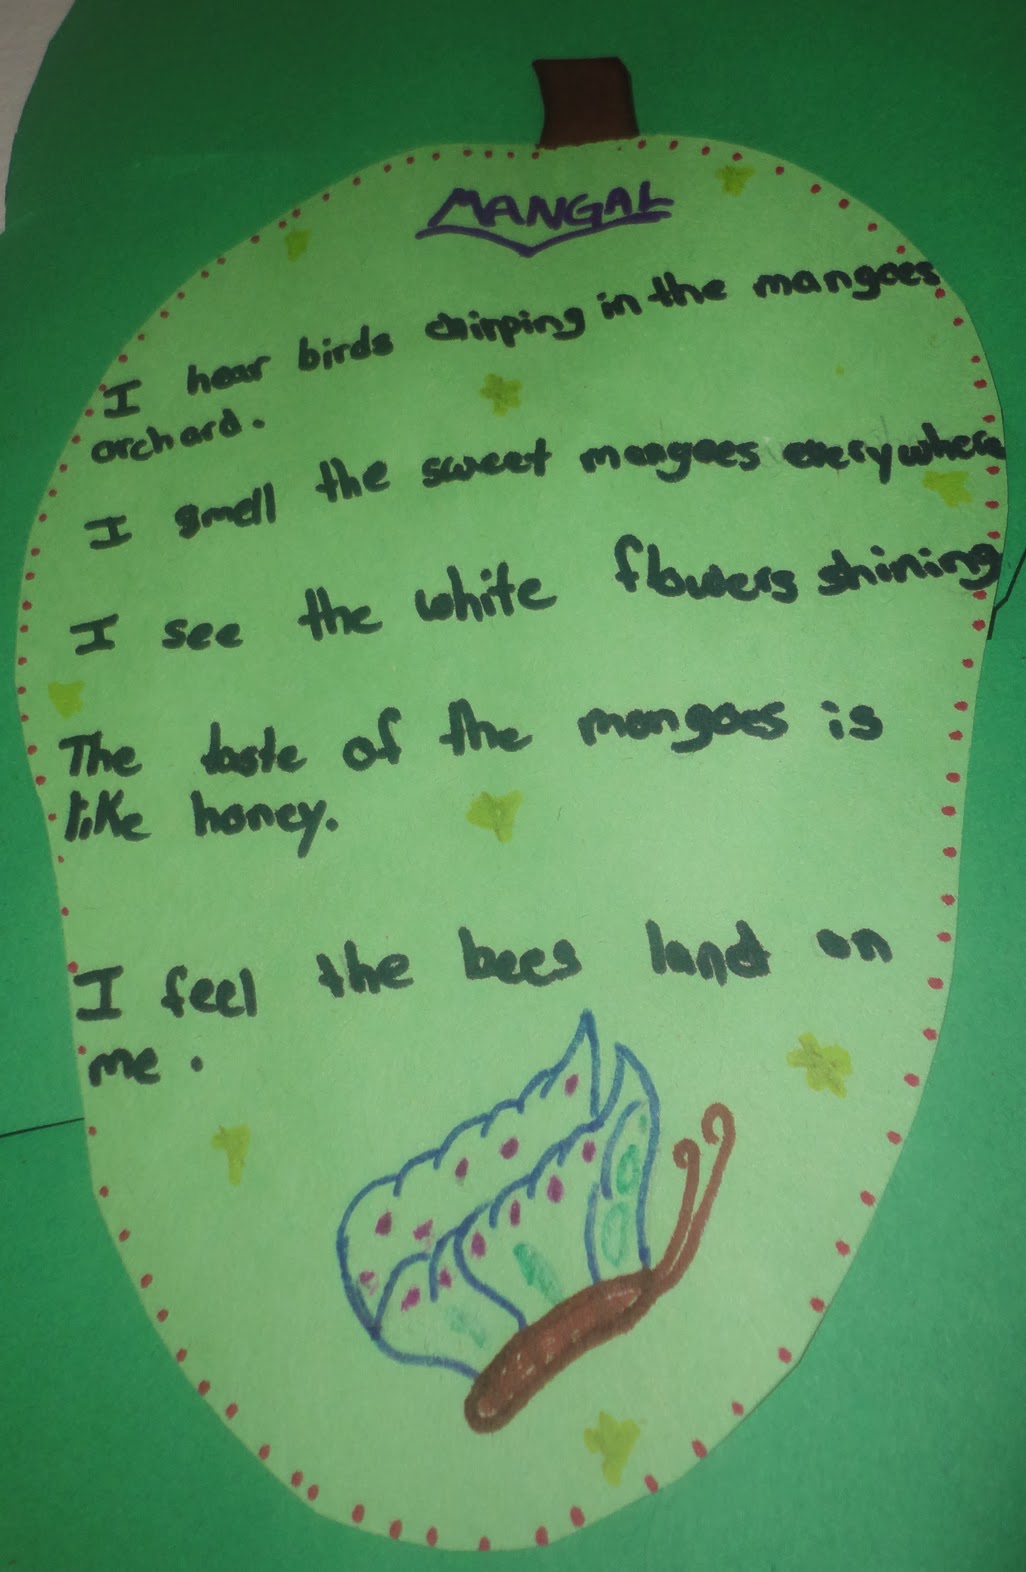 MANGAL
I hear birds chirping in the mangoes
orchard.
I smell the sweet mangoes everywhere
I see the white flowers shining
The taste of the mangoes is
like honey.
I feel the bees land on
me.